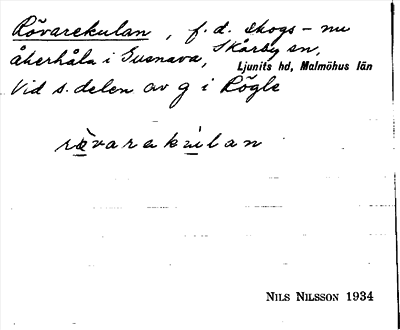 Rövarekulan, f.d. skogs- nu
åkerhåla i Gusnava, Skårby sn,
Ljunits hd, Malmöhus län
Vid s. delen av g i Rögle
rövarekulan
NILS NILSSON 1934